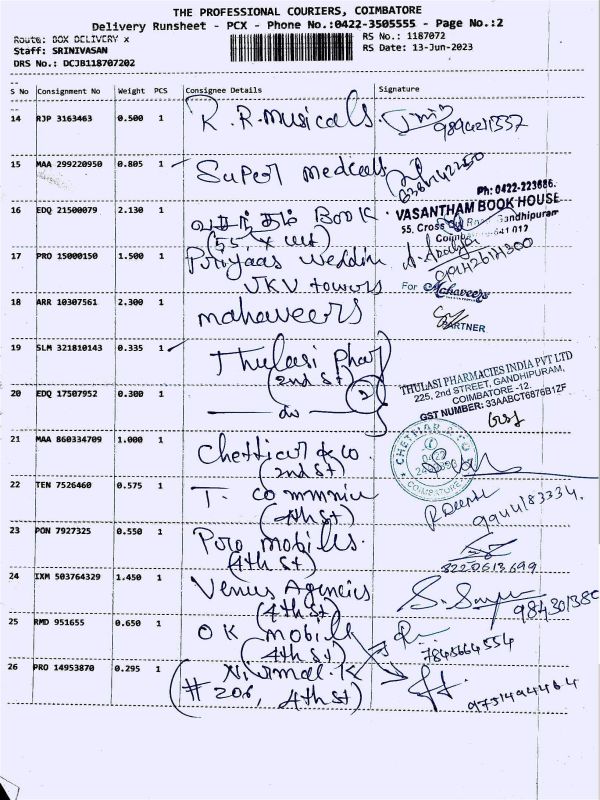 THE PROFESSIONAL COURIERS, COIMBATORE
Delivery Runsheet - PCX - Phone No.:0422-3505555 - Page No.:2
Route: BOX DELIVERY x
RS No.: 1187072
Staff: SRINIVASAN
RS Date: 13-Jun-2023
DRS No.: DCJB118707202
S No Consignment No Weight PCS Consignee Details Signature
14 RJP 3163463 0.500 1 R.R.musicals.
15 MAA 299220950 0.805 1 Super medicals
Ph: 0422-223686.
VASANTHAM BOOK HOUSE
16 EDQ 21500079 2.130 1 வசந்தம் BOOK
55, Cross Cut Road Gandhipuram
(55, x cut)
Coimbatore-641 012
17 PRO 15000150 1.500 1 Priyaas wedding
VKV towers
For Mahaveers
18 ARR 10307561 2.300 1 mahaveers
PARTNER
19 SLM 321810143 0.335 1 Thulasi Phar
(2nd St)
THULASI PHARMACIES INDIA PVT LTD
225, 2nd STREET, GANDHIPURAM,
COIMBATORE -12.
GST NUMBER: 33AABCT6876B1ZF
20 EDQ 17507952 0.300 1 do 2
21 MAA 860334709 1.000 1 Chettiar & co.
(2nd St)
CHETTIAR & CO
COIMBATORE
22 TEN 7526460 0.575 1 T.
(4th St)
9944183334.
23 PON 7927325 0.550 1 Poro mobiles.
(4th St)
8220613699
24 IXM 503764329 1.450 1 Venus Agencies
(4th St)
25 RMD 951655 0.650 1 OK mobile
(4th St)
7845664554
26 PRO 14953870 0.295 1 Nirmal.K
(# 206, 4th St)
9751494464